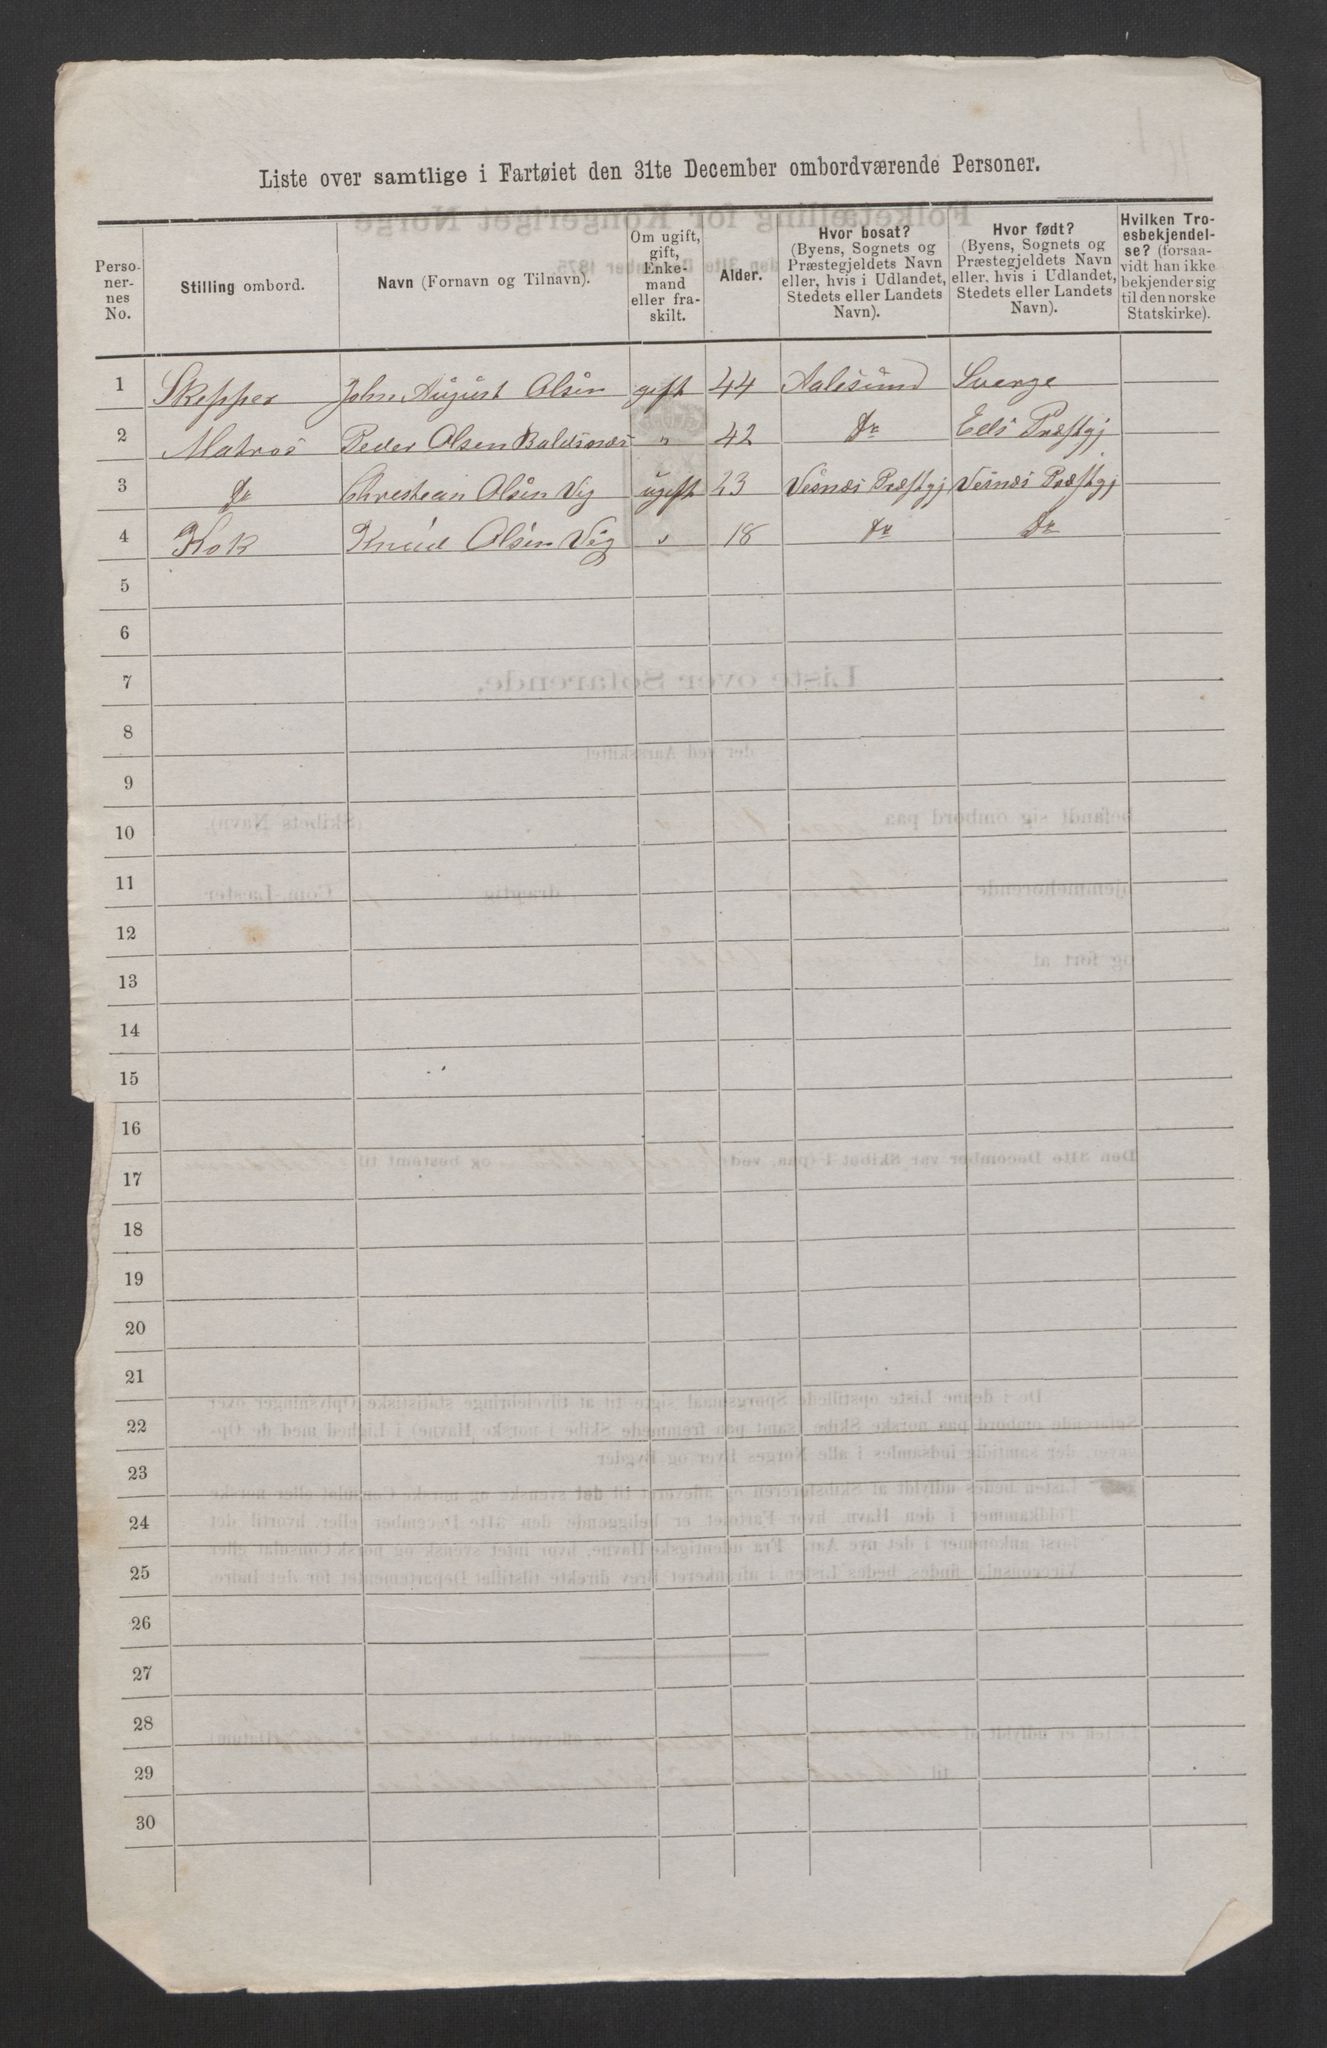 Liste over samtlige i Fartøiet den 31te December ombordværende Personer.
Personernes No. | Stilling ombord. | Navn (Fornavn og Tilnavn). | Om ugift, gift, Enkemand eller fraskilt. | Alder. | Hvor bosat? (Byens, Sognets og Præstegjeldets Navn eller, hvis i Udlandet, Stedets eller Landets Navn). | Hvor født? (Byens, Sognets og Præstegjeldets Navn eller, hvis i Udlandet, Stedets eller Landets Navn). | Hvilken Troesbekjendelse? (forsaavidt han ikke bekjender sig til den norske Statskirke).
1 Skepper John August Olsen gift 44 Aalesund Sverge
2 Matros Peder Olsen Baldsnes " 42 Do Eds Præstgj
3 Do Chrestean Olsen Vig ugift 23 Vesnæs Præstgj Vesnæs Præstgj
4 Kok Knud Olsen Vig " 18 Do Do
5
6
7
8
9
10
11
12
13
14
15
16
17
18
19
20
21
22
23
24
25
26
27
28
29
30